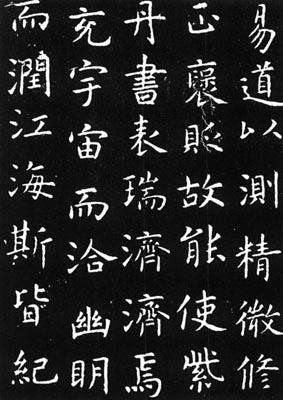 易道以測精微修
正襃貶故能使紫
丹書表瑞濟濟焉
充宇宙而洽幽明
而潤江海斯皆紀